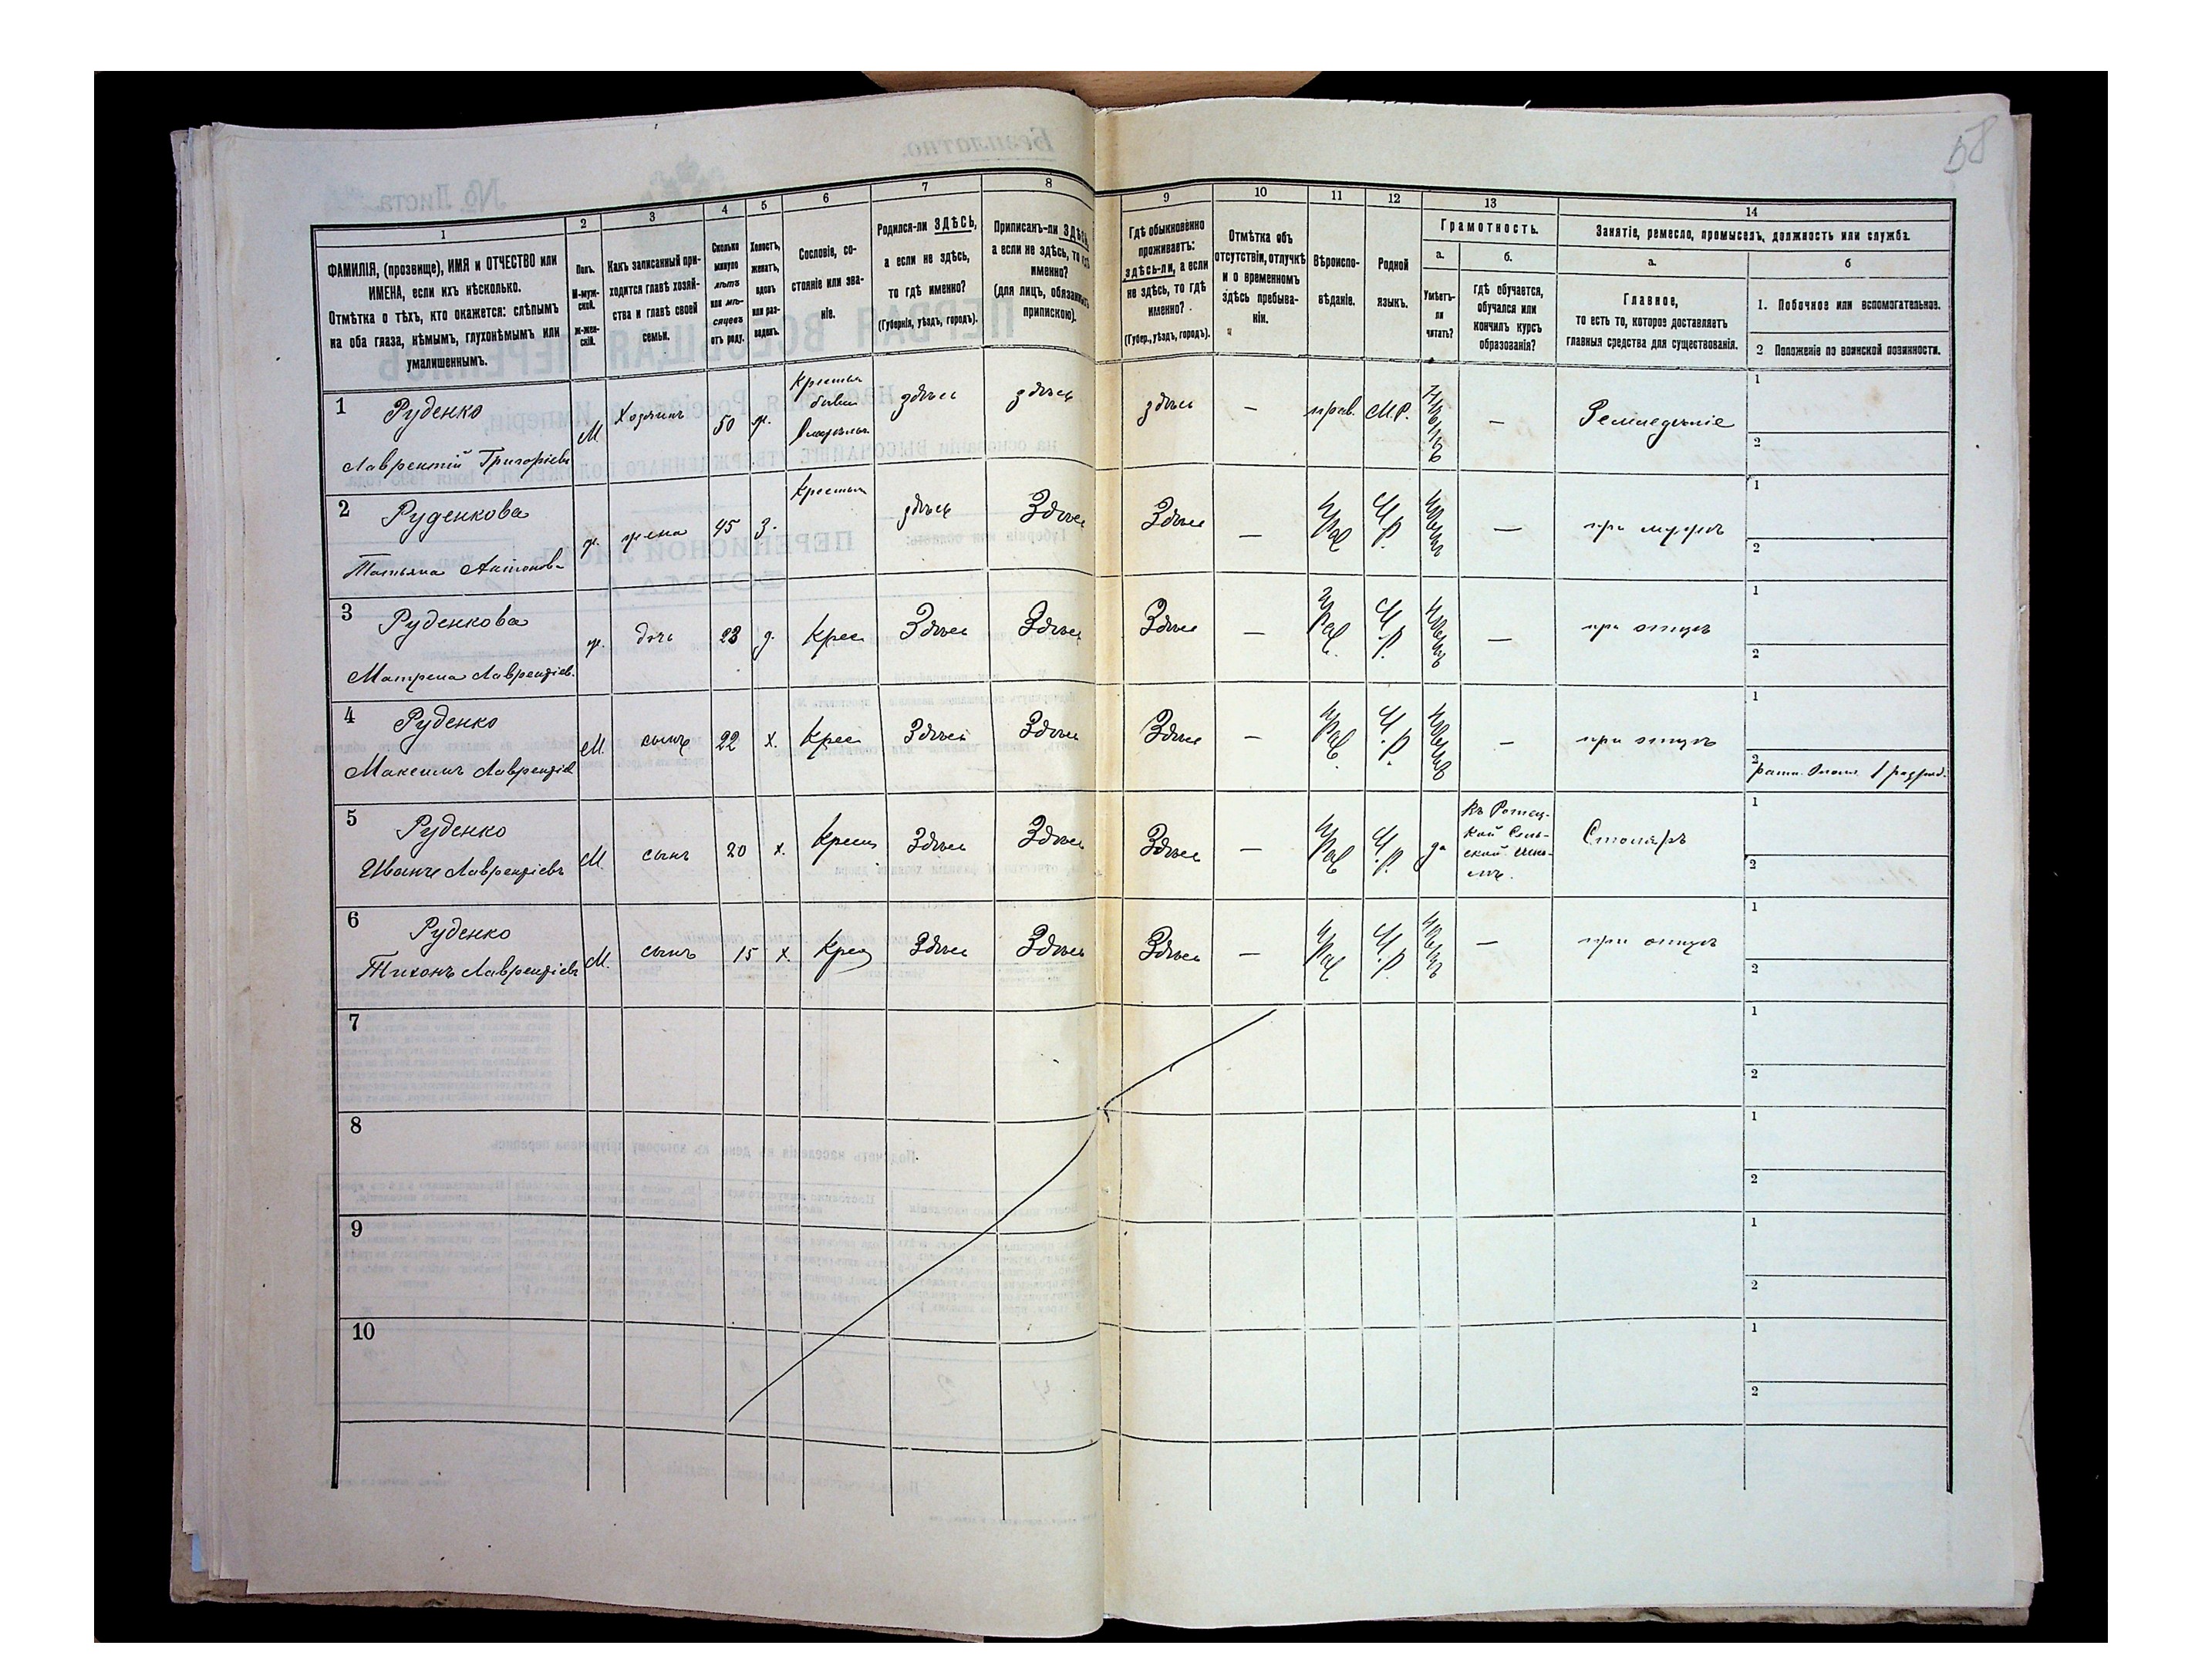 58
1
ФАМИЛІЯ, (прозвище), ИМЯ и ОТЧЕСТВО или
ИМЕНА, если ихъ нѣсколько.
Отмѣтка о тѣхъ, кто окажется: слѣпымъ
на оба глаза, нѣмымъ, глухонѣмымъ или
умалишеннымъ.
2
Полъ.
М-муж-
ской.
ж-жен-
скій.
3
Какъ записанный при-
ходится главѣ хозяй-
ства и главѣ своей
семьи.
4
Сколько
минуло
лѣтъ
или мѣ-
сяцевъ
отъ роду.
5
Холостъ,
женатъ,
вдовъ
или раз-
веденъ.
6
Сословіе, со-
стояніе или зва-
ніе.
7
Родился-ли ЗДѢСЬ,
а если не здѣсь,
то гдѣ именно?
(Губернія, уѣздъ, городъ).
8
Приписанъ-ли ЗДѢСЬ,
а если не здѣсь, то гдѣ
именно?
(для лицъ, обязанныхъ
припискою).
9
Гдѣ обыкновенно
проживаетъ:
здѣсь-ли, а если
не здѣсь, то гдѣ
именно?
(Губер., уѣздъ, городъ).
10
Отмѣтка объ
отсутствіи, отлучкѣ
и о временномъ
здѣсь пребыва-
ніи.
11
Вѣроиспо-
вѣданіе.
12
Родной
языкъ.
13
Грамотность.
а.
Умѣетъ-
ли
читать?
б.
гдѣ обучается,
обучался или
кончилъ курсъ
образованія?
14
Занятіе, ремесло, промыселъ, должность или служба.
а.
Главное,
то есть то, которое доставляетъ
главныя средства для существованія.
б
1. Побочное или вспомогательное.
2 Положеніе по воинской повинности.
1 Руденко
Лаврентій Григорьевъ
М
Хозяинъ
50
ж.
Крестьян
бывш
здѣсь
здѣсь
здѣсь
—
прав.
М.Р.
—
Земледѣліе
1
2
2 Руденкова
Татьяна Антонов
ж.
жена
45
З.
Крестьян
здѣсь
Здѣсь
Здѣсь
—
Прав
М.Р.
—
при мужѣ
1
2
3 Руденкова
Матрена Лаврентіев.
ж.
дочь
23
д.
Крес
Здѣсь
Здѣсь
Здѣсь
—
Прав.
М.Р.
—
при отцѣ
1
2
4 Руденко
Максимъ Лаврентіев
М.
сынъ
22
х.
Крес
Здѣсь
Здѣсь
Здѣсь
—
Прав.
М.Р.
—
при отцѣ
1
2 ратн. Ополч. 1 разряд.
5 Руденко
Иванъ Лаврентіевъ
М.
сынъ
20
х.
Крест
Здѣсь
Здѣсь
Здѣсь
—
Прав
М.Р.
да
Столяръ
1
2
6 Руденко
Тихонъ Лаврентіевъ
М.
сынъ
15
х.
Крес
Здѣсь
Здѣсь
Здѣсь
—
Прав
М.Р.
—
при отцѣ
1
2
7
1
2
8
1
2
9
1
2
10
1
2